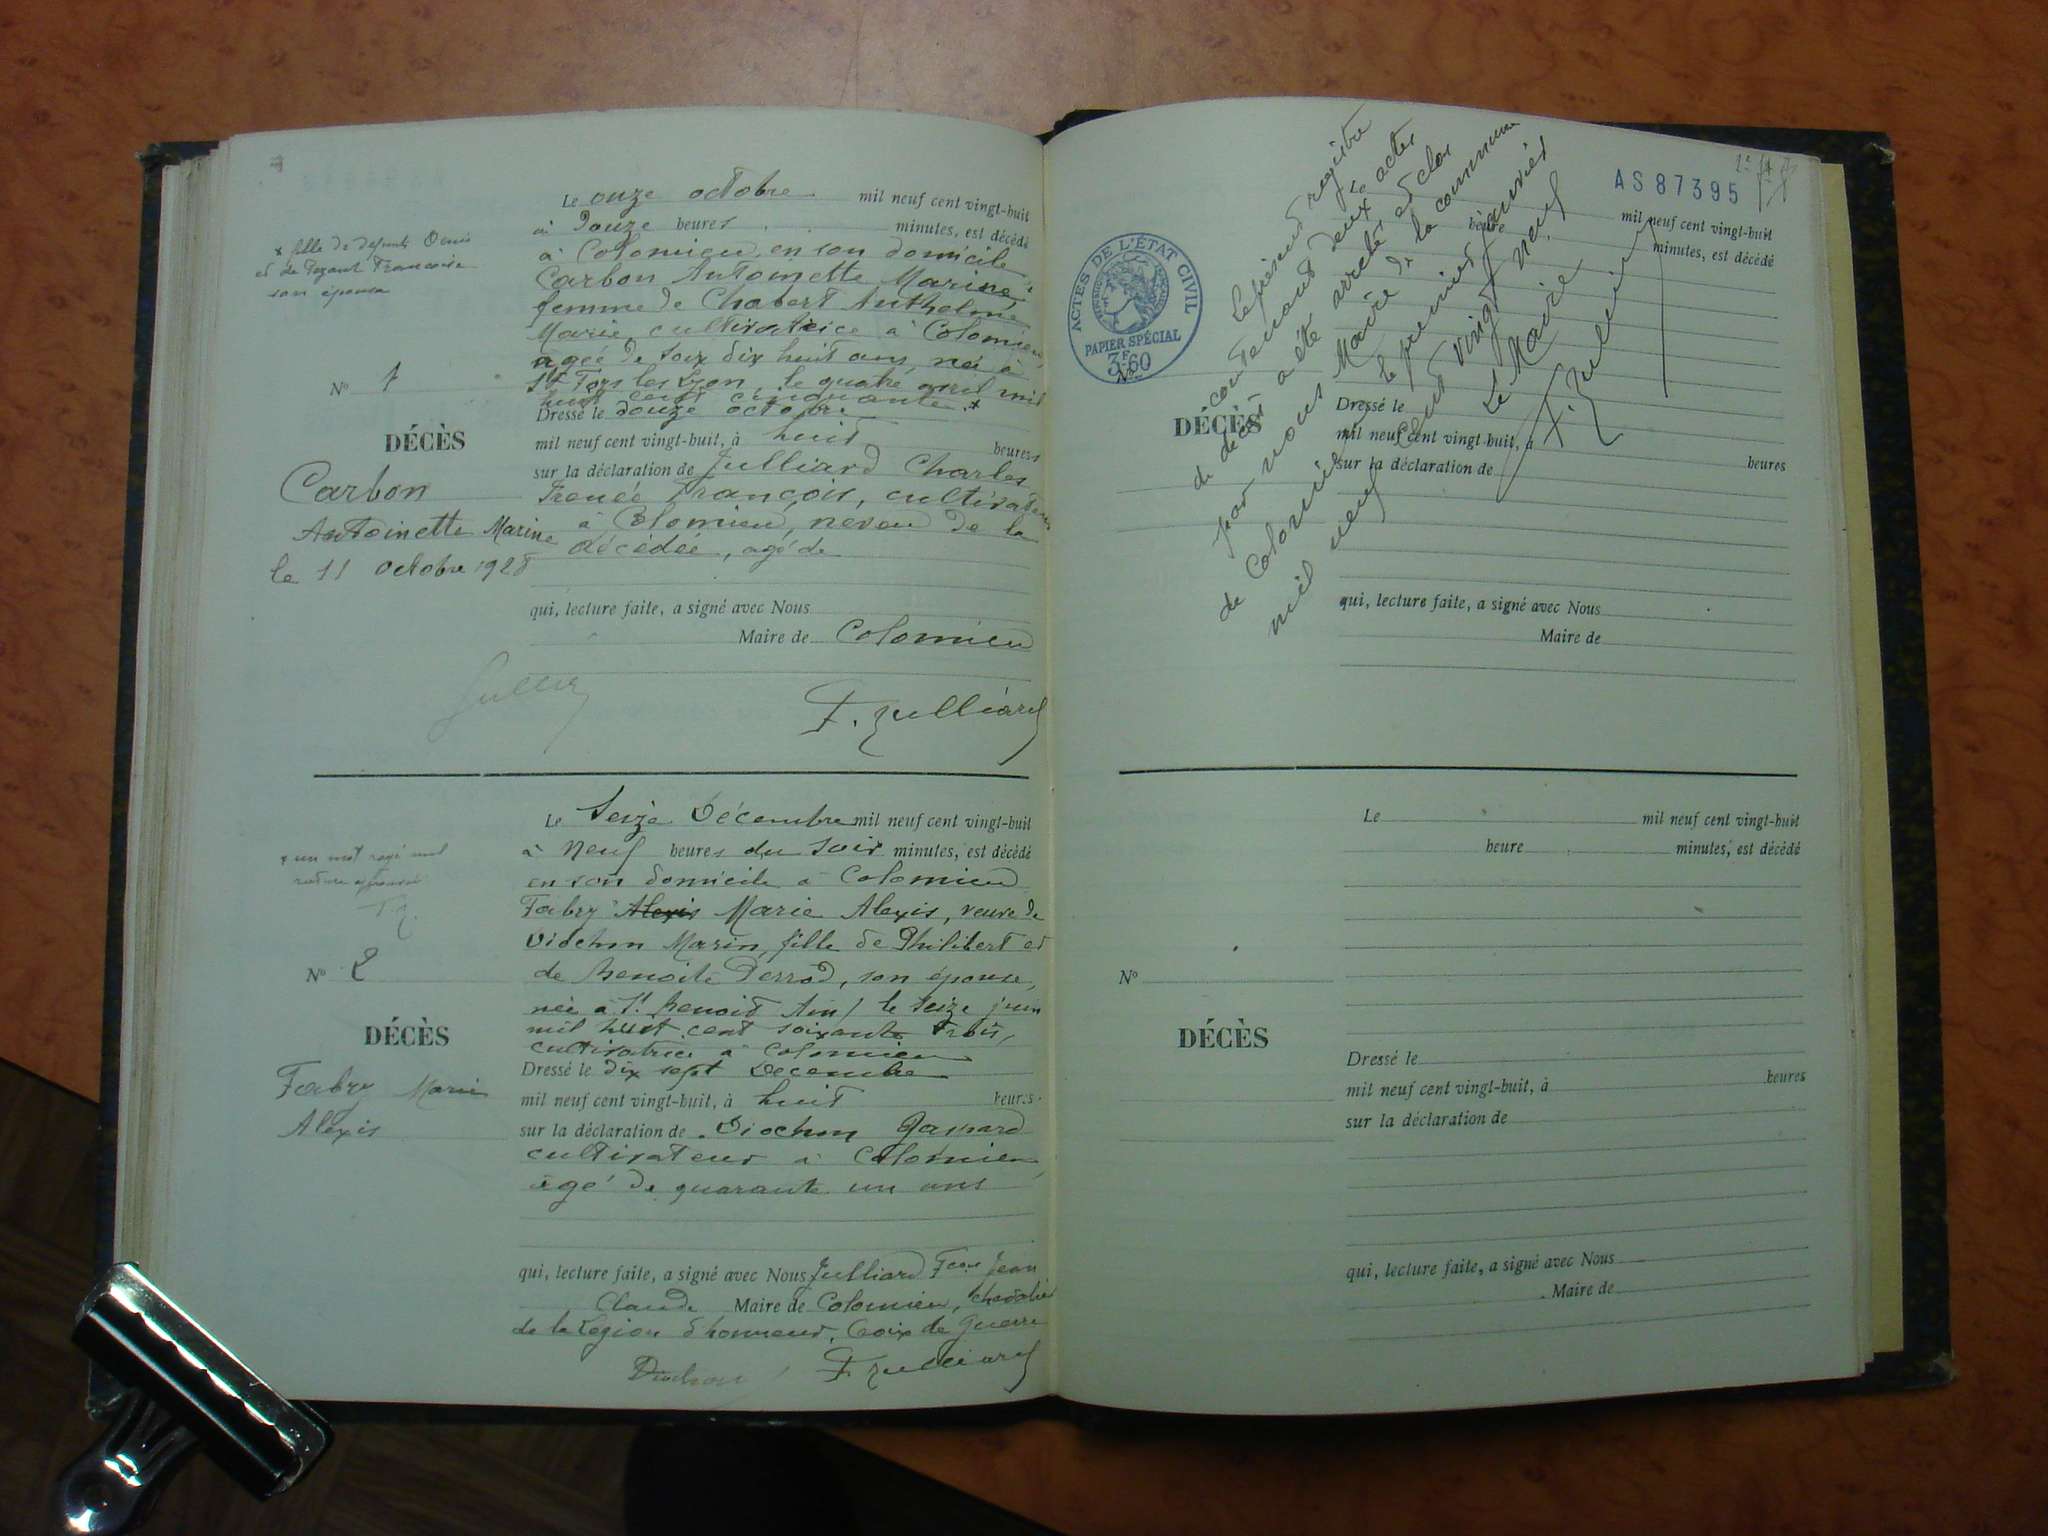 Le onze octobre mil neuf cent vingt-huit
à Douze heures minutes, est décédé
à Colomieu, en son domicile
Carbon Antoinette Marine
femme de Chabert Anthelme
Marie, cultivatrice à Colomieu,
agée de soix dix huit ans, née à
le quatre avril mil
huit cent cinquante.*
* fille de défunts Denis
et de Françoise
son épouse
N° 1
DÉCÈS
Carbon
Antoinette Marine
le 11 octobre 1928
Dressé le douze octobre
mil neuf cent vingt-huit, à huit heures
sur la déclaration de Julliard Charles
François, cultivateur
à Colomieu, neveu de la
décédée, agé de
qui, lecture faite, a signé avec Nous
Maire de Colomieu
F. Julliard
Le Seize Décembre mil neuf cent vingt-huit
à Neuf heures du soir minutes, est décédé
en son domicile à Colomieu
Fabry Alexis Marie Alexis, veuve de
Diochon Marin, fille de Philibert et
de Benoite Perrod, son épouse,
née à St Benoit Ain, le Seize juin
mil huit cent soixante trois,
cultivatrice à Colomieu
* un mot rayé nul
N° 2
DÉCÈS
Fabry Marie
Alexis
Dressé le dix sept Decembre
mil neuf cent vingt-huit, à huit heures
sur la déclaration de Diochon Gaspard
cultivateur à Colomieu,
âgé de quarante un ans
qui, lecture faite, a signé avec Nous Julliard Fçois Jean
Claude Maire de Colomieu, chevalier
de la Légion d'honneur, Croix de Guerre
Diochon F. Julliard
AS 87395
ACTES DE L'ÉTAT CIVIL
PAPIER SPÉCIAL
3F60
Le présent registre
contenant deux actes
de décès a été arrêté et clos
par nous Maire de la commune
de Colomieu le premier janvier
mil neuf cent vingt neuf
Le Maire
F. Julliard
Le mil neuf cent vingt-huit
heure minutes, est décédé
N°
DÉCÈS
Dressé le
mil neuf cent vingt-huit, à heures
sur la déclaration de
qui, lecture faite, a signé avec Nous
Maire de
Le mil neuf cent vingt-huit
heure minutes, est décédé
N°
DÉCÈS
Dressé le
mil neuf cent vingt-huit, à heures
sur la déclaration de
qui, lecture faite, a signé avec Nous
Maire de